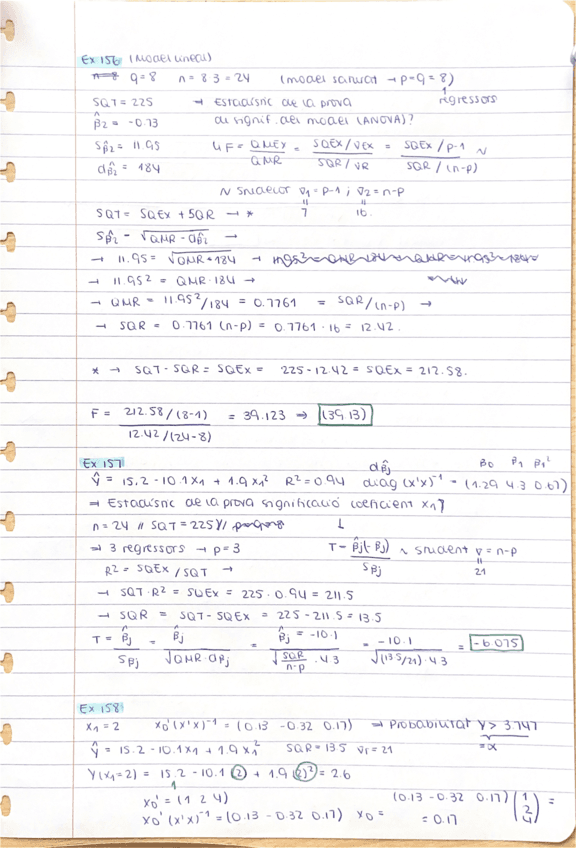 Ex 156 (Model lineal)
n=8 q=8 n=8·3=24 (model saturat → p=q=8)
regressors
SQT=225 ⇒ Estadístic de la prova
β̂2 = -0.73 de signif. del model (ANOVA)?
Sβ̂2 = 11.95 F = QMEx / QMR = SQEx/νEx / SQR/νR = SQEx/p-1 / SQR/(n-p) ~
dβ̂2 = 184
~ Snedecor ν1=p-1 ; ν2=n-p
7 16.
SQT = SQEx + SQR → *
Sβ̂2 = √QMR·dβ̂2 →
→ 11.95 = √QMR·184 →
→ 11.95² = QMR·184 →
→ QMR = 11.95²/184 = 0.7761 = SQR/(n-p) →
→ SQR = 0.7761 (n-p) = 0.7761·16 = 12.42.
* → SQT-SQR = SQEx = 225-12.42 = SQEx = 212.58.
F = 212.58/(8-1) / 12.42/(24-8) = 39.123 ⇒ (39.13)
Ex 157 dβ̂j β0 β1 β1²
Ŷ = 15.2 - 10.1x1 + 1.9x1² R²=0.94 diag (x'x)⁻¹ = (1.29 4.3 0.67)
⇒ Estadístic de la prova significació coeficient x1?
n=24 // SQT=225 // ↓
⇒ 3 regressors → p=3 T = β̂j(-βj) / Sβ̂j ~ student ν=n-p
21
R² = SQEx/SQT →
→ SQT·R² = SQEx = 225·0.94 = 211.5
→ SQR = SQT-SQEx = 225-211.5 = 13.5
T = β̂j / Sβ̂j = β̂j / √QMR·dβj = β̂j = -10.1 / √SQR/n-p · 4.3 = -10.1 / √(13.5/21)·4.3 = -6.075
Ex 158
x1=2 x0'(x'x)⁻¹ = (0.13 -0.32 0.17) ⇒ Probabilitat Y > 3.747
=α
Ŷ = 15.2 - 10.1x1 + 1.9x1² SQR=13.5 νr=21
Y(x1=2) = 15.2 - 10.1(2) + 1.9(2)² = 2.6
x0' = (1 2 4)
x0'(x'x)⁻¹ = (0.13 -0.32 0.17) x0 = (0.13 -0.32 0.17) (1 2 4) =
= 0.17